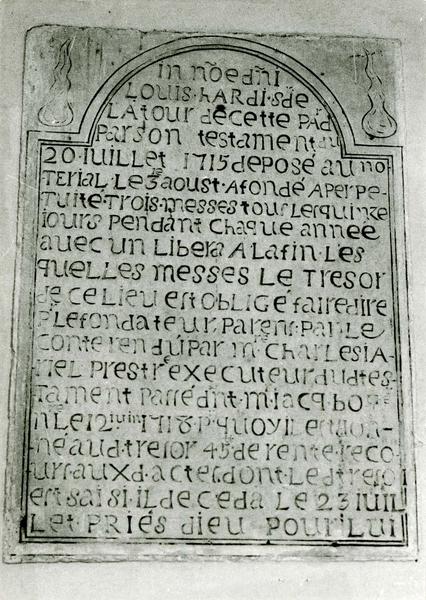 in nõe dñi
Louis·hARdi·s de
LAtour de cette PAd
Par son testament du
20·Iuillet 1715 deposé au no-
TERiAL·Le 3 aoust·A fondé A PERPE-
Tuité·Trois·messes tous Les quinze
iours Pendant chaque année
auec un Libera A La fin·Les
quelles messes Le Tresor
de ce Lieu est OBLIGÉ faire dire
P Le fondateur Parens·Par Le
conte rendu PAR mr chArLes IA-
mEL PRestre executeur dud tes-
Tament Passé dvt·m·iacq bo
n Le 12 juin 1716·P quoy iL en don-
ne aud·tresor 45 de rente·reco-
urs auxd·actes dont Led tresor
est sAisi·iL deceda Le 23 IUIL
Let PRiés dieu POUR LUi